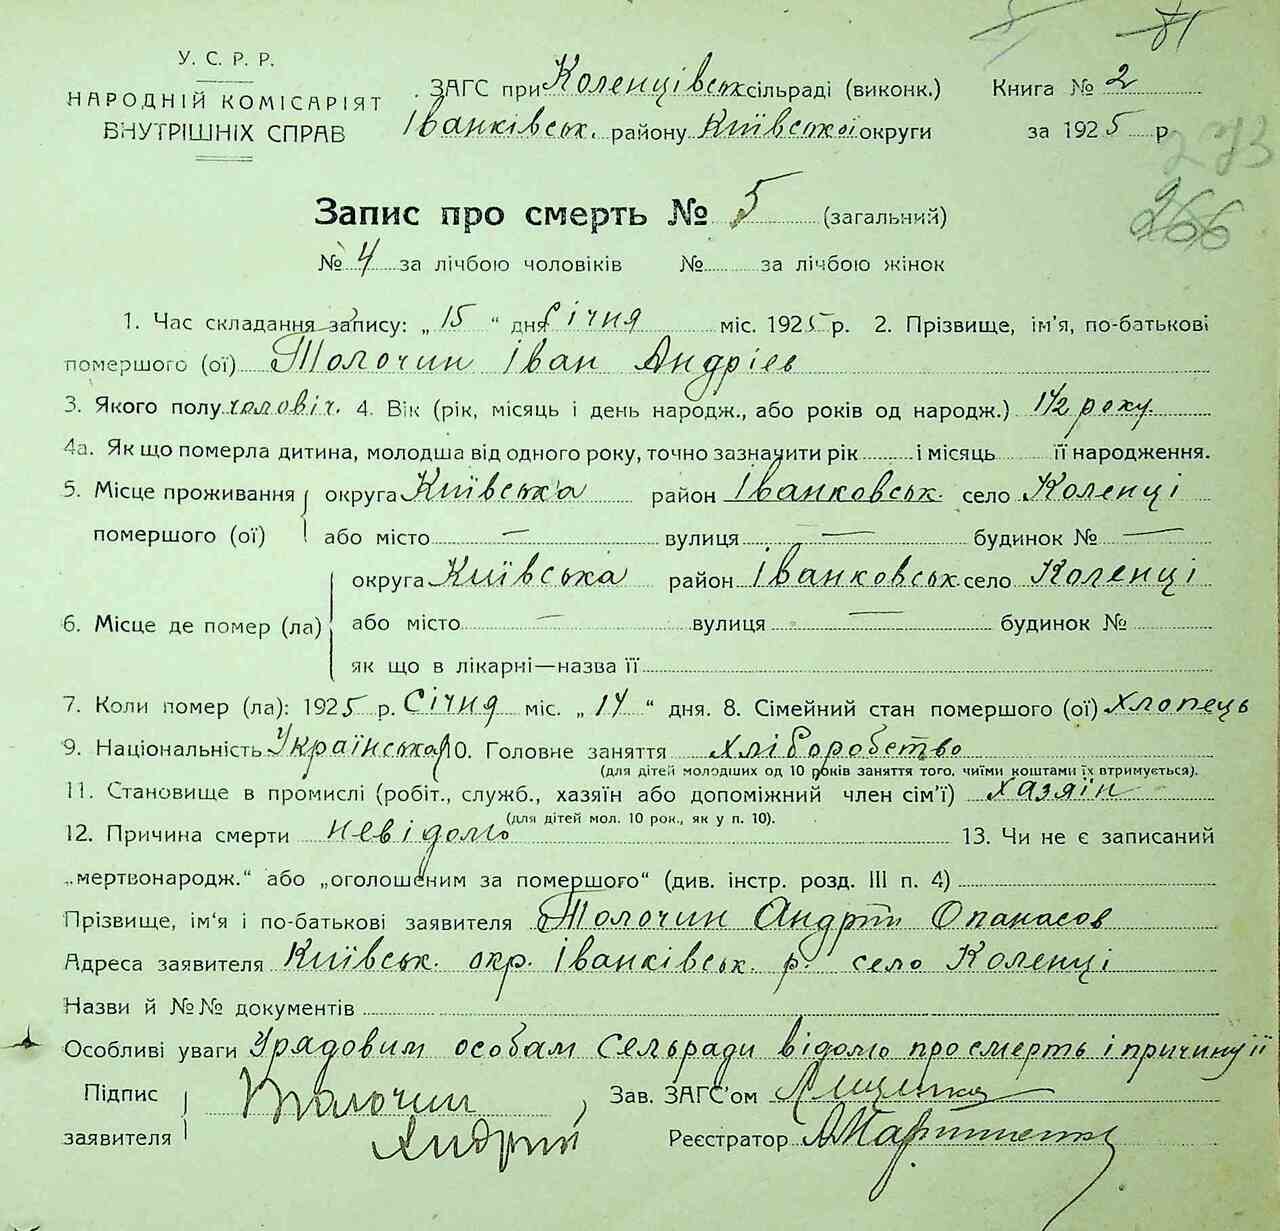 81
У. С. Р. Р.
НАРОДНІЙ КОМІСАРІЯТ
ВНУТРІШНІХ СПРАВ
ЗАГС при Коленцівськ сільраді (виконк.) Книга № 2
Іванківськ. району Київської округи за 1925 р
273
266
Запис про смерть № 5 (загальний)
№ 4 за лічбою чоловіків № за лічбою жінок
1. Час складання запису: „ 15 “ дня Січня міс. 1925 р. 2. Прізвище, ім'я, по-батькові
помершого (ої) Толочин Іван Андріев
3. Якого полу чоловіч. 4. Вік (рік, місяць і день народж., або років од народж.) 1 1/2 року
4а. Як що померла дитина, молодша від одного року, точно зазначити рік і місяць її народження.
5. Місце проживання помершого (ої) округа Київська район Іванковськ. село Коленці
або місто — вулиця — будинок № —
6. Місце де помер (ла) округа Київська район Іванковськ. село Коленці
або місто — вулиця — будинок №
як що в лікарні—назва її
7. Коли помер (ла): 1925 р. Січня міс. „ 14 “ дня. 8. Сімейний стан помершого (ої) хлопець
9. Національність Українська 10. Головне заняття хліборобство
(для дітей молодших од 10 років заняття того, чиїми коштами їх втримується).
11. Становище в промислі (робіт., служб., хазяїн або допоміжний член сім'ї) хазяїн
(для дітей мол. 10 рок., як у п. 10).
12. Причина смерти невідомо 13. Чи не є записаний
„мертвонародж.“ або „оголошеним за помершого“ (див. інстр. розд. III п. 4)
Прізвище, ім'я і по-батькові заявителя Толочин Андрій Опанасов
Адреса заявителя Київськ. окр. Іванківськ. р. село Коленці
Назви й №№ документів
Особливі уваги Урядовим особам Сельради відомо про смерть і причину її
Підпис заявителя Толочин Зав. ЗАГС'ом
Андрій Реєстратор